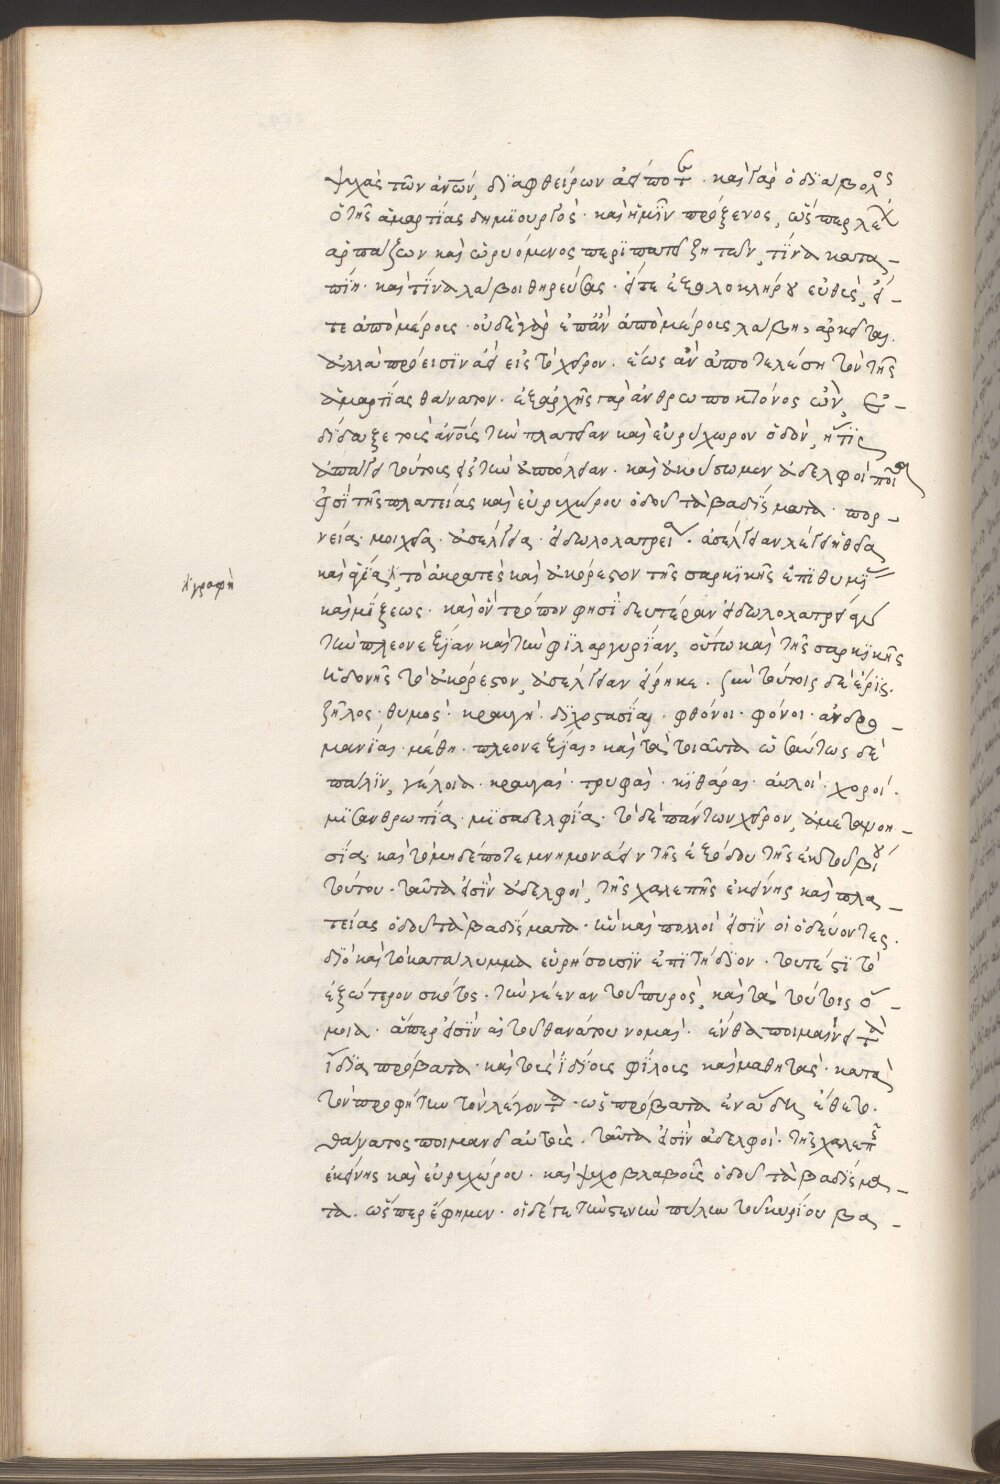 ψυχὰς τῶν ἀνῶν, διαφθείρων ἀεί ποτε. καὶ γὰρ ὁ διάβολος
ὁ τῆς ἁμαρτίας δημιουργὸς. καὶ ἡμῖν πρόξενος, ὥσπερ λέων
ἁρπάζων καὶ ὠρυόμενος περιπατεῖ ζητῶν, τίνα κατα-
πίῃ. καὶ τίνα λάβοι θηρεύσας. εἴτε ἐξ ὁλοκλήρου εὐθὺς, εἴ-
τε ἀπὸ μέρους. οὐδὲ γὰρ ἐπὰν ἀπὸ μέρους λάβῃ, ἀρκεῖται.
ἀλλὰ πρόεισιν ἀεὶ εἰς τὸ χεῖρον. ἕως ἂν ἀποτελέσῃ τὸν τῆς
ἁμαρτίας θάνατον. ἐξ ἀρχῆς γὰρ ἀνθρωποκτόνος ὢν, ἐ-
δίδαξε τοὺς ἀνοῖς τὴν πλατεῖαν καὶ εὐρύχωρον ὁδὸν, ἥτις
ἀπάγει τούτους εἰς τὴν ἀπώλειαν. καὶ ἀκούσωμεν ἀδελφοὶ ποῖα
εἰσὶ τῆς πλατείας καὶ εὐρυχώρου ὁδοῦ τὰ βαδίσματα. πορ-
νεία. μοιχεία. ἀσέλγεια. εἰδωλολατρεία. ἀσέλγειαν λέγει ἡ θεία
καὶ ἁγία τὸ ἀκρατὲς καὶ ἀκόρεστον τῆς σαρκικῆς ἐπιθυμίας
γραφὴ
καὶ μίξεως. καὶ ὃν τρόπον φησὶ δευτέραν εἰδωλολατρείαν
τὴν πλεονεξίαν καὶ τὴν φιλαργυρίαν, οὕτω καὶ τῆς σαρκικῆς
ἡδονῆς τὸ ἀκόρεστον, ἀσέλγειαν εἴρηκε. σὺν τούτοις δὲ ἔρις.
ζῆλος. θυμὸς. κραυγὴ. διχοστασία. φθόνοι. φόνοι. ἀνδρο-
μανία. μέθη. πλεονεξία, καὶ τὰ τοιαῦτα ὡσαύτως δὲ
πάλιν, γέλοια. κραυγαὶ. τρυφαὶ. κιθάραι. αὐλοὶ. χοροί.
μισανθρωπία. μισαδελφία. τὸ δὲ πάντων χεῖρον, ἀμετανοη-
σία. καὶ τὸ μηδέποτε μνημονεύειν τῆς ἐξόδου τῆς ἐκ τοῦ βίου
τούτου. ταῦτα εἰσὶν ἀδελφοὶ, τῆς χαλεπῆς ἐκείνης καὶ πλα-
τείας ὁδοῦ τὰ βαδίσματα. ἣν καὶ πολλοὶ εἰσὶν οἱ ὁδεύοντες.
διὸ καὶ τὸ κατάλυμμα εὑρήσουσιν ἐπιτήδιον. τουτέστι τὸ
ἐξώτερον σκότος. τὴν γέεναν τοῦ πυρὸς, καὶ τὰ τούτοις ὅ-
μοια. ἅπερ εἰσὶν αἱ τοῦ θανάτου νομαὶ. ἔνθα ποιμαίνει τὰ
ἴδια πρόβατα. καὶ τοὺς ἰδίους φίλους καὶ μαθητὰς. κατὰ
τὸν προφήτην τὸν λέγοντα. ὡς πρόβατα ἐν ᾅδῃ ἔθετο.
θάνατος ποιμανεῖ αὐτοὺς. ταῦτα εἰσὶν ἀδελφοὶ. τῆς χαλεπῆς
ἐκείνης καὶ εὐρυχώρου. καὶ ψυχοβλαβοῦς ὁδοῦ τὰ βαδίσμα-
τα. ὥσπερ ἔφημεν. οἱ δέ γε τὴν στενὴν πύλην τοῦ κυρίου βα-